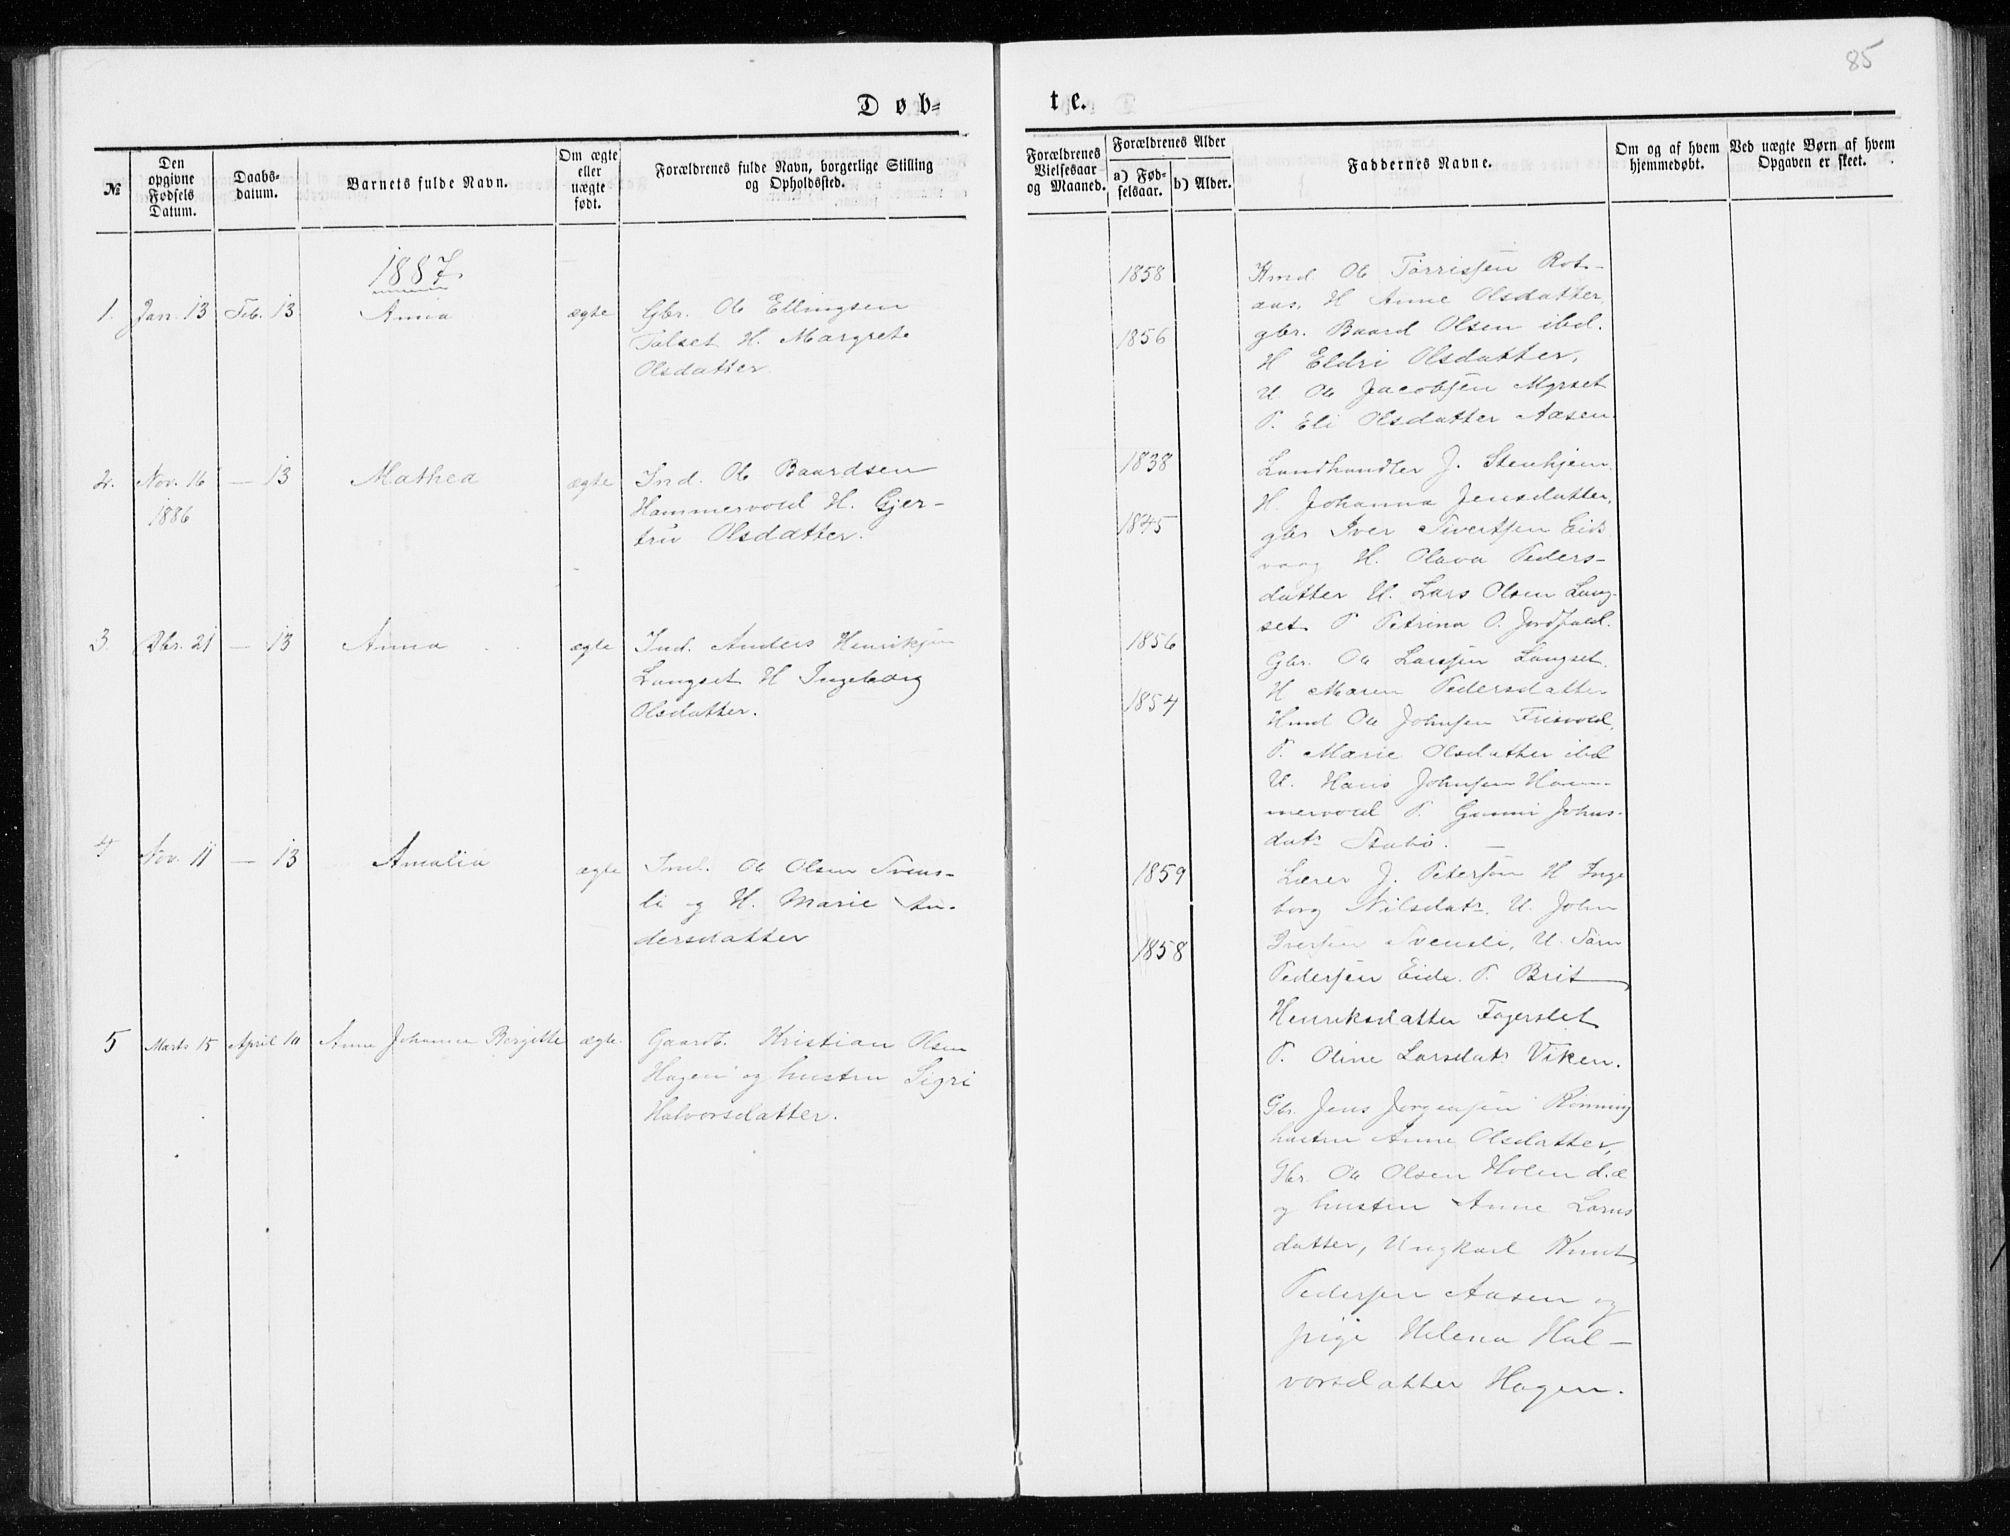 85
Døb-
te.
№
Den opgivne Fødsels Datum.
Daabs-datum.
Barnets fulde Navn.
Om ægte eller uægte født.
Forældrenes fulde Navn, borgerlige Stilling og Opholdssted.
Forældrenes Vielsesaar og Maaned.
Forældrenes Alder
a) Fød-selsaar.
b) Alder.
Faddernes Navne.
Om og af hvem hjemmedøbt.
Ved uægte Børn af hvem Opgaven er skeet.
1887
1. Jan. 13 Feb. 13 Anna ægte Gbr. Ole Ellingsen
Talset H. Margrete
Olsdatter
1858
1856
Kmd. Ole Tørrissen Rot-
aas, H Anne Olsdatter,
gbr. Baard Olsen ibd.
H Eldri Olsdatter,
U. Ole Jacobsen Myrset
P. Eli Olsdatter Aasen
2. Nov. 16 — 13 Mathea ægte Ind. Ole Baardsen
1886
Hammervold H. Gjer-
tru Olsdatter.
1838
1845
Landhandler J. Stenhjem
H. Johanna Jensdatter,
gbr Iver Sivertsen Eids
vaag H. Olava Peders-
datter U. Lars Olsen Lang-
set P Petrina O. Jordfald.
3. Dbr. 21 — 13 Anna ægte Ind. Anders Henriksen
Langset H Ingeborg
Olsdatter.
1856
1854
Gbr. Ole Larssen Langset.
H Maren Pedersdatter
Hmd Ole Johnsen Frisvold,
P. Marie Olsdatter ibd
U. Hans Johnsen Ham-
mervold P. Gunni Johns-
datr Stubø. —
4 Nov. 11 — 13 Amalia ægte Ind. Ole Olsen Svens-
li og H. Marie An-
dersdatter
1859
1858
Lærer J. Petersen H Inge
borg Nilsdatr. U. John
Iversen Svensli, U. Sørn
Pedersen Eide. P. Brit
Henriksdatter Fagerslet
P. Oline Larsdatr Viken.
5 Marts 15 April 10 Anne Johanna Bergitte ægte Gaardb. Kristian Olsen
Hagen og hustru Sigri
Halvorsdatter.
Gbr. Jens Jørgensen Rønning
hustru Anne Olsdatter,
Gbr. Ole Olsen Holen d.æ
og hustru Anne Larns
datter, Ungkarl Knut
Pedersen Aasen og
pige Helena Hal-
vorsdatter Hagen.